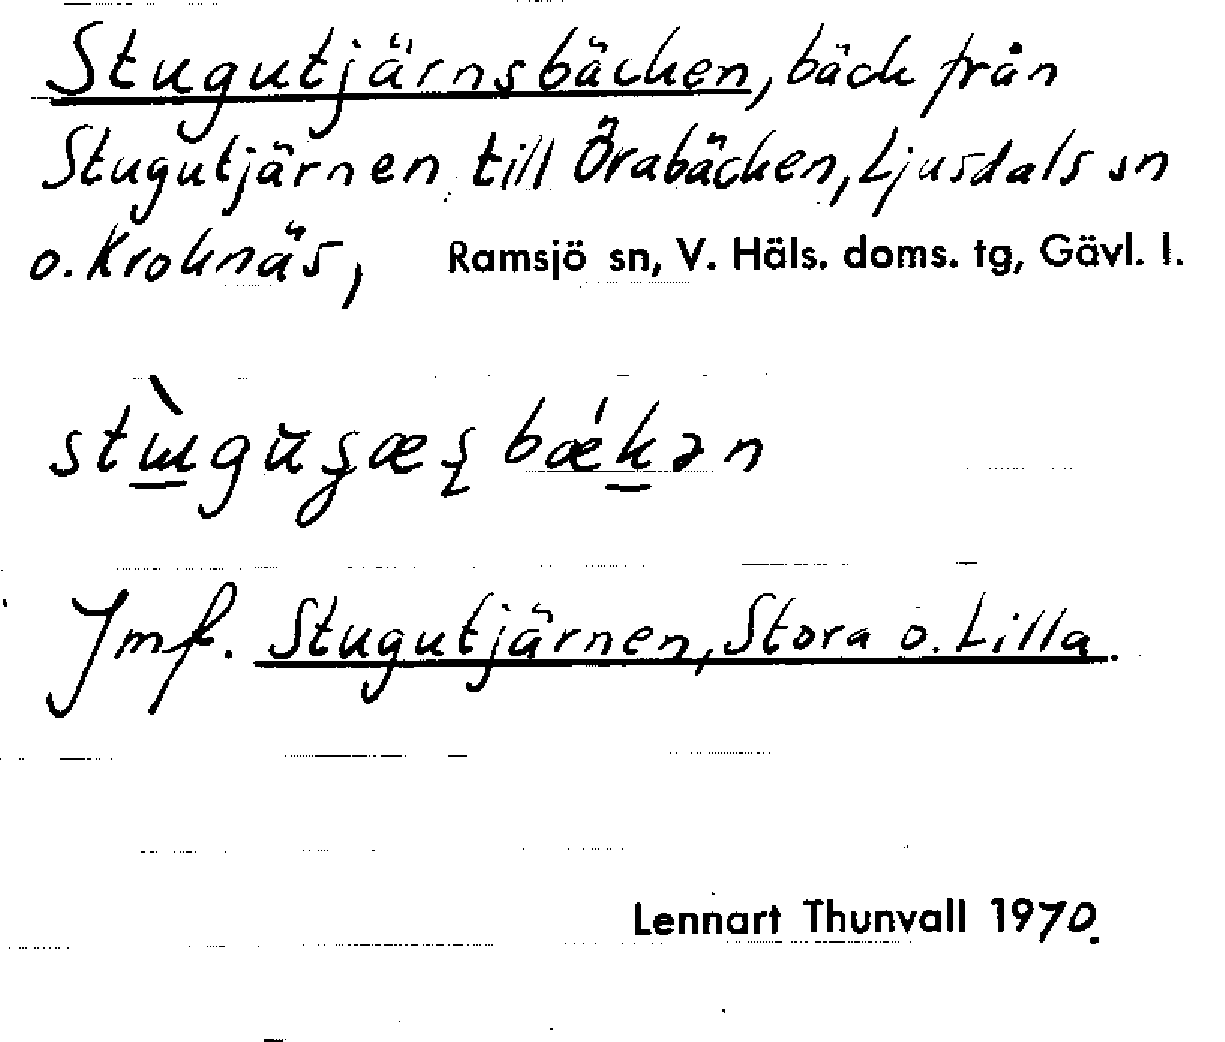 Stugutjärnsbäcken, bäck från
Stugutjärnen till Örabäcken, Ljusdals sn
o. Kroknäs, Ramsjö sn, V. Häls. doms. tg, Gävl. l.
Jmf. Stugutjärnen, Stora o. Lilla.
Lennart Thunvall 1970.